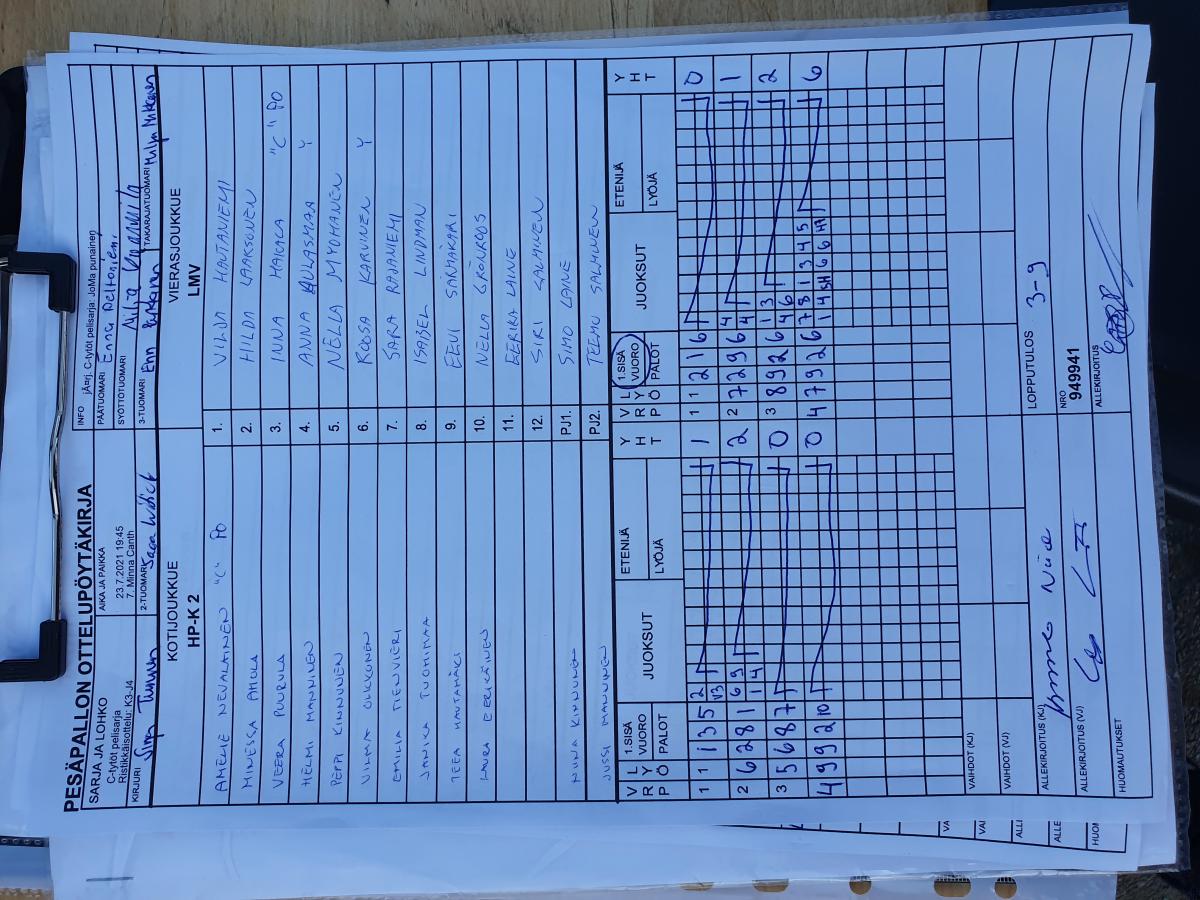 PESÄPALLON OTTELUPÖYTÄKIRJA
SARJA JA LOHKO
C-tytöt pelisarja
Ristikkäisottelu: K3-J4
AIKA JA PAIKKA
23.7.2021 19:45
7. Minna Canth
INFO jÄ¤rj. C-tytöt pelisarja: JoMa punainen
PÄÄTUOMARI Enna Peltoniemi
SYÖTTÖTUOMARI
KIRJURI
2-TUOMARI
3-TUOMARI
TAKARAJATUOMARI
KOTIJOUKKUE
HP-K 2
VIERASJOUKKUE
LMV
AMELIE NEVALAINEN "C" PO
1. VILDA HAUTANIEMI
MINESSA AHOLA
2. HILDA LAAKSONEN
VEERA PUURULA
3. INNA HAKALA "C" PO
HELMI MANNINEN
4. ANNA AULASMAA Y
PEPPI KINNUNEN
5. NELLA MYÖHÄNEN
VILMA OUKKONEN
6. ROOSA KARVINEN Y
EMILIA TIENVIERI
7. SARA RAJANIEMI
JANIKA TUOHIMAA
8. ISABEL LINDMAN
TEEA HAUTAMÄKI
9. EEVI SÄRMÄKARI
LAURA EERIKÄINEN
10. NELLA GRÖNROOS
11. EERIKA LAINE
12. SIRI SALMINEN
MINJA KINNUNEN
PJ1. SIMO LAINE
JUSSI MANNINEN
PJ2. TEEMU SALMINEN
V R P L Y Ö 1.SISÄ VUORO PALOT JUOKSUT ETENIJÄ LYÖJÄ Y H T
V R P L Y Ö 1.SISÄ VUORO PALOT JUOKSUT ETENIJÄ LYÖJÄ Y H T
1 1 1 3 5 2 V3 1
1 1 2 1 6 0
2 6 2 8 1 6 9 1 4 2
2 7 2 9 6 4 4 1
3 5 6 8 7 0
3 8 9 2 6 1 3 4 6 2
4 9 9 2 10 0
0 4 7 9 2 6 7 8 1 3 4 5 1 4 5H 6 6 H7 6
VAIHDOT (KJ)
VAIHDOT (VJ)
ALLEKIRJOITUS (KJ)
LOPPUTULOS 3-9
ALLEKIRJOITUS (VJ)
NRO
949941
HUOMAUTUKSET
ALLEKIRJOITUS